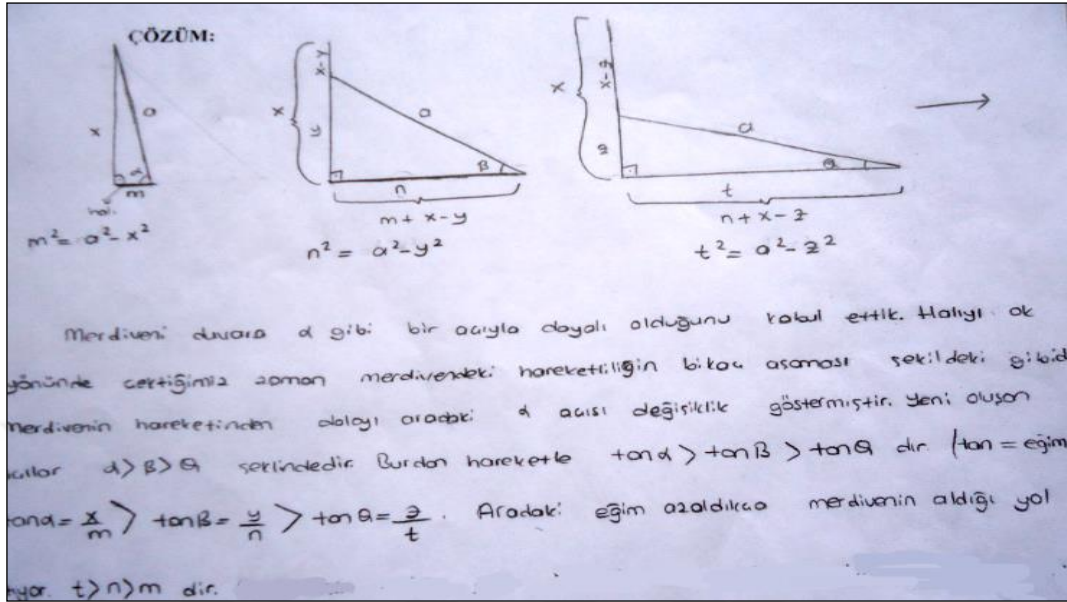 ÇÖZÜM:
x a α m
halı
m² = a² - x²
x x-y y a β n
m + x - y
n² = a² - y²
x x-z z a θ t
n + x - z
t² = a² - z²
Merdiveni duvara α gibi bir açıyla dayalı olduğunu kabul ettik. Halıyı ok
yönünde çektiğimiz zaman merdivendeki hareketliliğin bikaç aşaması şekildeki gibid
merdivenin hareketinden dolayı aradaki α açısı değişiklik göstermiştir. Yeni oluşan
açılar α > β > θ şeklindedir. Burdan hareketle tanα > tanβ > tanθ dır. (tan = eğim
tanα = x/m > tanβ = y/n > tanθ = z/t . Aradaki eğim azaldıkça merdivenin aldığı yol
t > n > m dir.